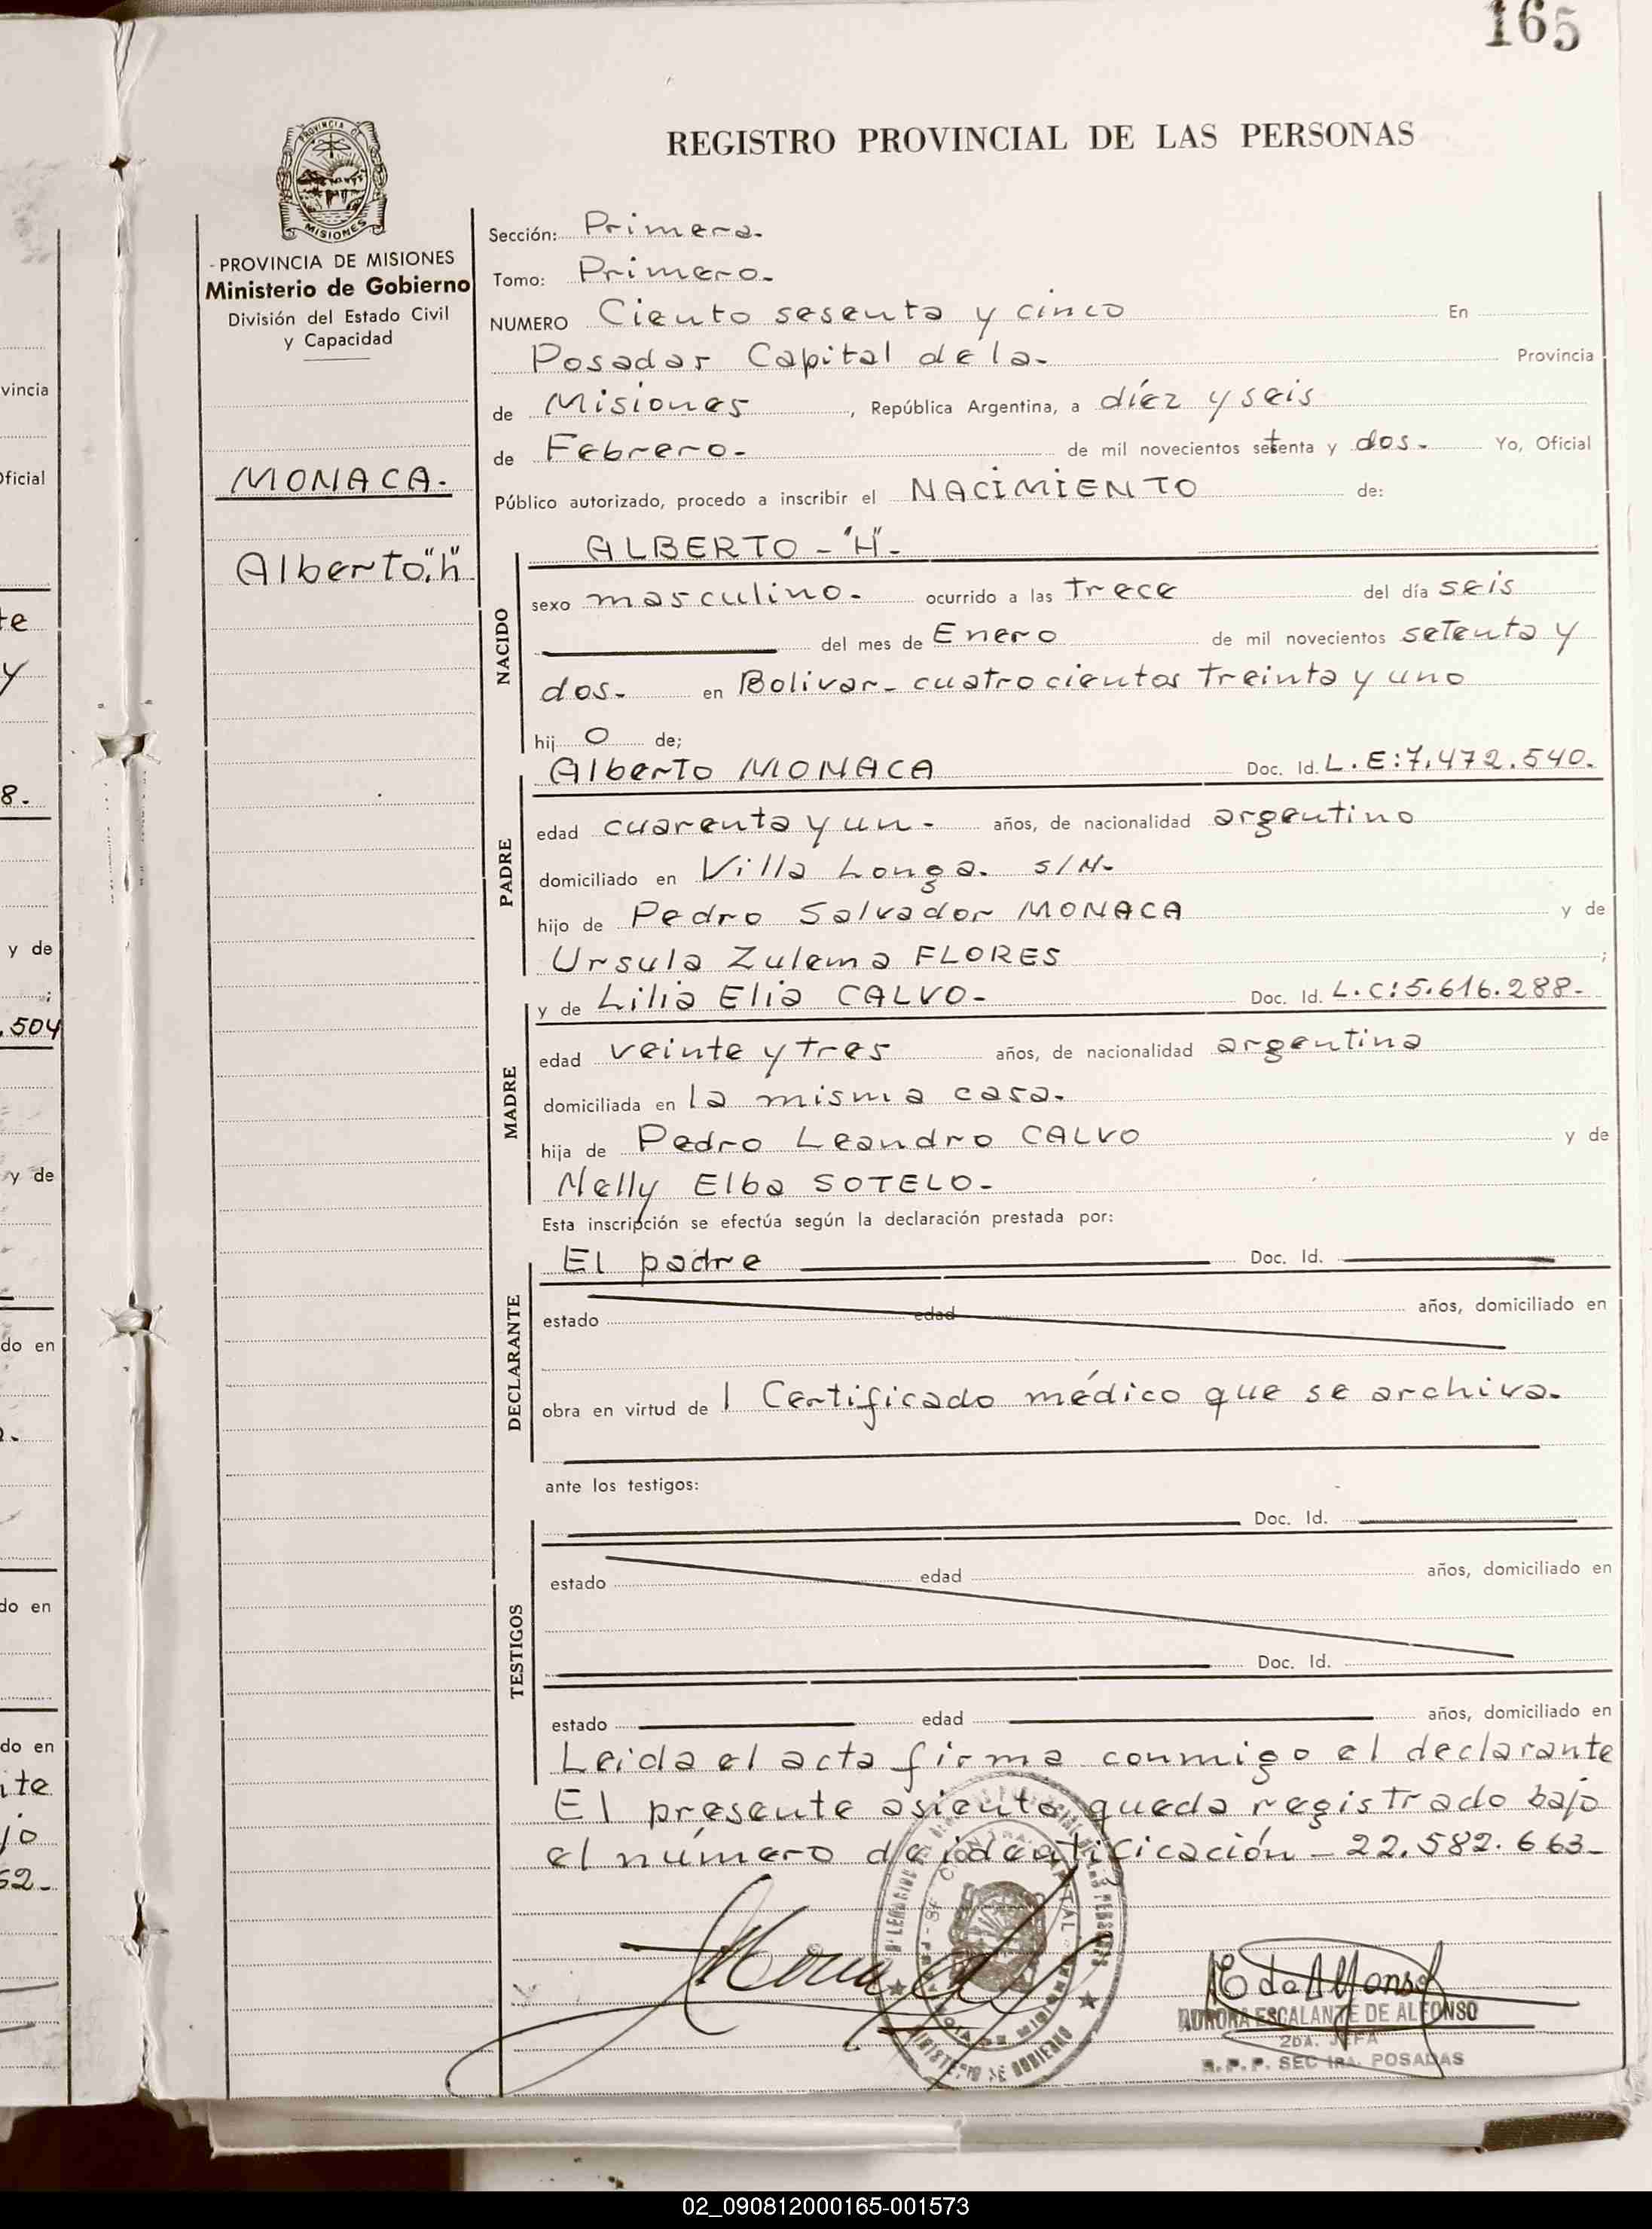 165
REGISTRO PROVINCIAL DE LAS PERSONAS
PROVINCIA DE MISIONES
Ministerio de Gobierno
División del Estado Civil
y Capacidad
MONACA.
Alberto."h"
Sección: Primera.
Tomo: Primero.
NUMERO Ciento sesenta y cinco En
Posadas Capital de la. Provincia
de Misiones, República Argentina, a diéz y seis
de Febrero. de mil novecientos setenta y dos. Yo, Oficial
Público autorizado, procedo a inscribir el NACIMIENTO de:
NACIDO
ALBERTO - "H".
sexo masculino. ocurrido a las trece del día seis
del mes de Enero de mil novecientos setenta y
dos. en Bolivar. cuatrocientos treinta y uno
hij o de;
PADRE
Alberto MONACA Doc. Id. L.E:7.472.540.
edad cuarenta y un. años, de nacionalidad argentino
domiciliado en Villa Longa. s/N.
hijo de Pedro Salvador MONACA y de
Ursula Zulema FLORES ;
MADRE
y de Lilia Elia CALVO. Doc. Id. L.C:5.616.288.
edad veinte y tres años, de nacionalidad argentina
domiciliada en la misma casa.
hija de Pedro Leandro CALVO y de
Nelly Elba SOTELO.
Esta inscripción se efectúa según la declaración prestada por:
DECLARANTE
El padre Doc. Id.
estado edad años, domiciliado en
obra en virtud de 1 Certificado médico que se archiva.
ante los testigos:
TESTIGOS
Doc. Id.
estado edad años, domiciliado en
Doc. Id.
estado edad años, domiciliado en
Leida el acta firma conmigo el declarante
El presente asiento queda registrado bajo
el número de identificación - 22.582.663.
AURORA ESCALANTE DE ALFONSO
2DA. JEFA
R.P.P. SEC 1RA. POSADAS
02_090812000165-001573